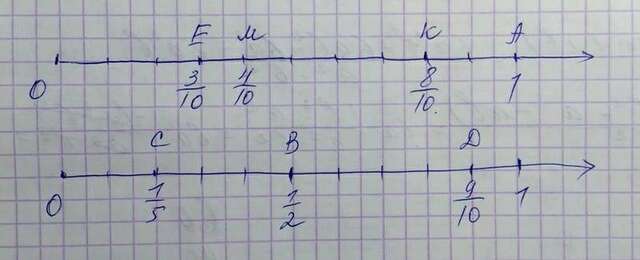 E M K A
0 3/10 4/10 8/10 1
C B D
0 1/5 1/2 9/10 1